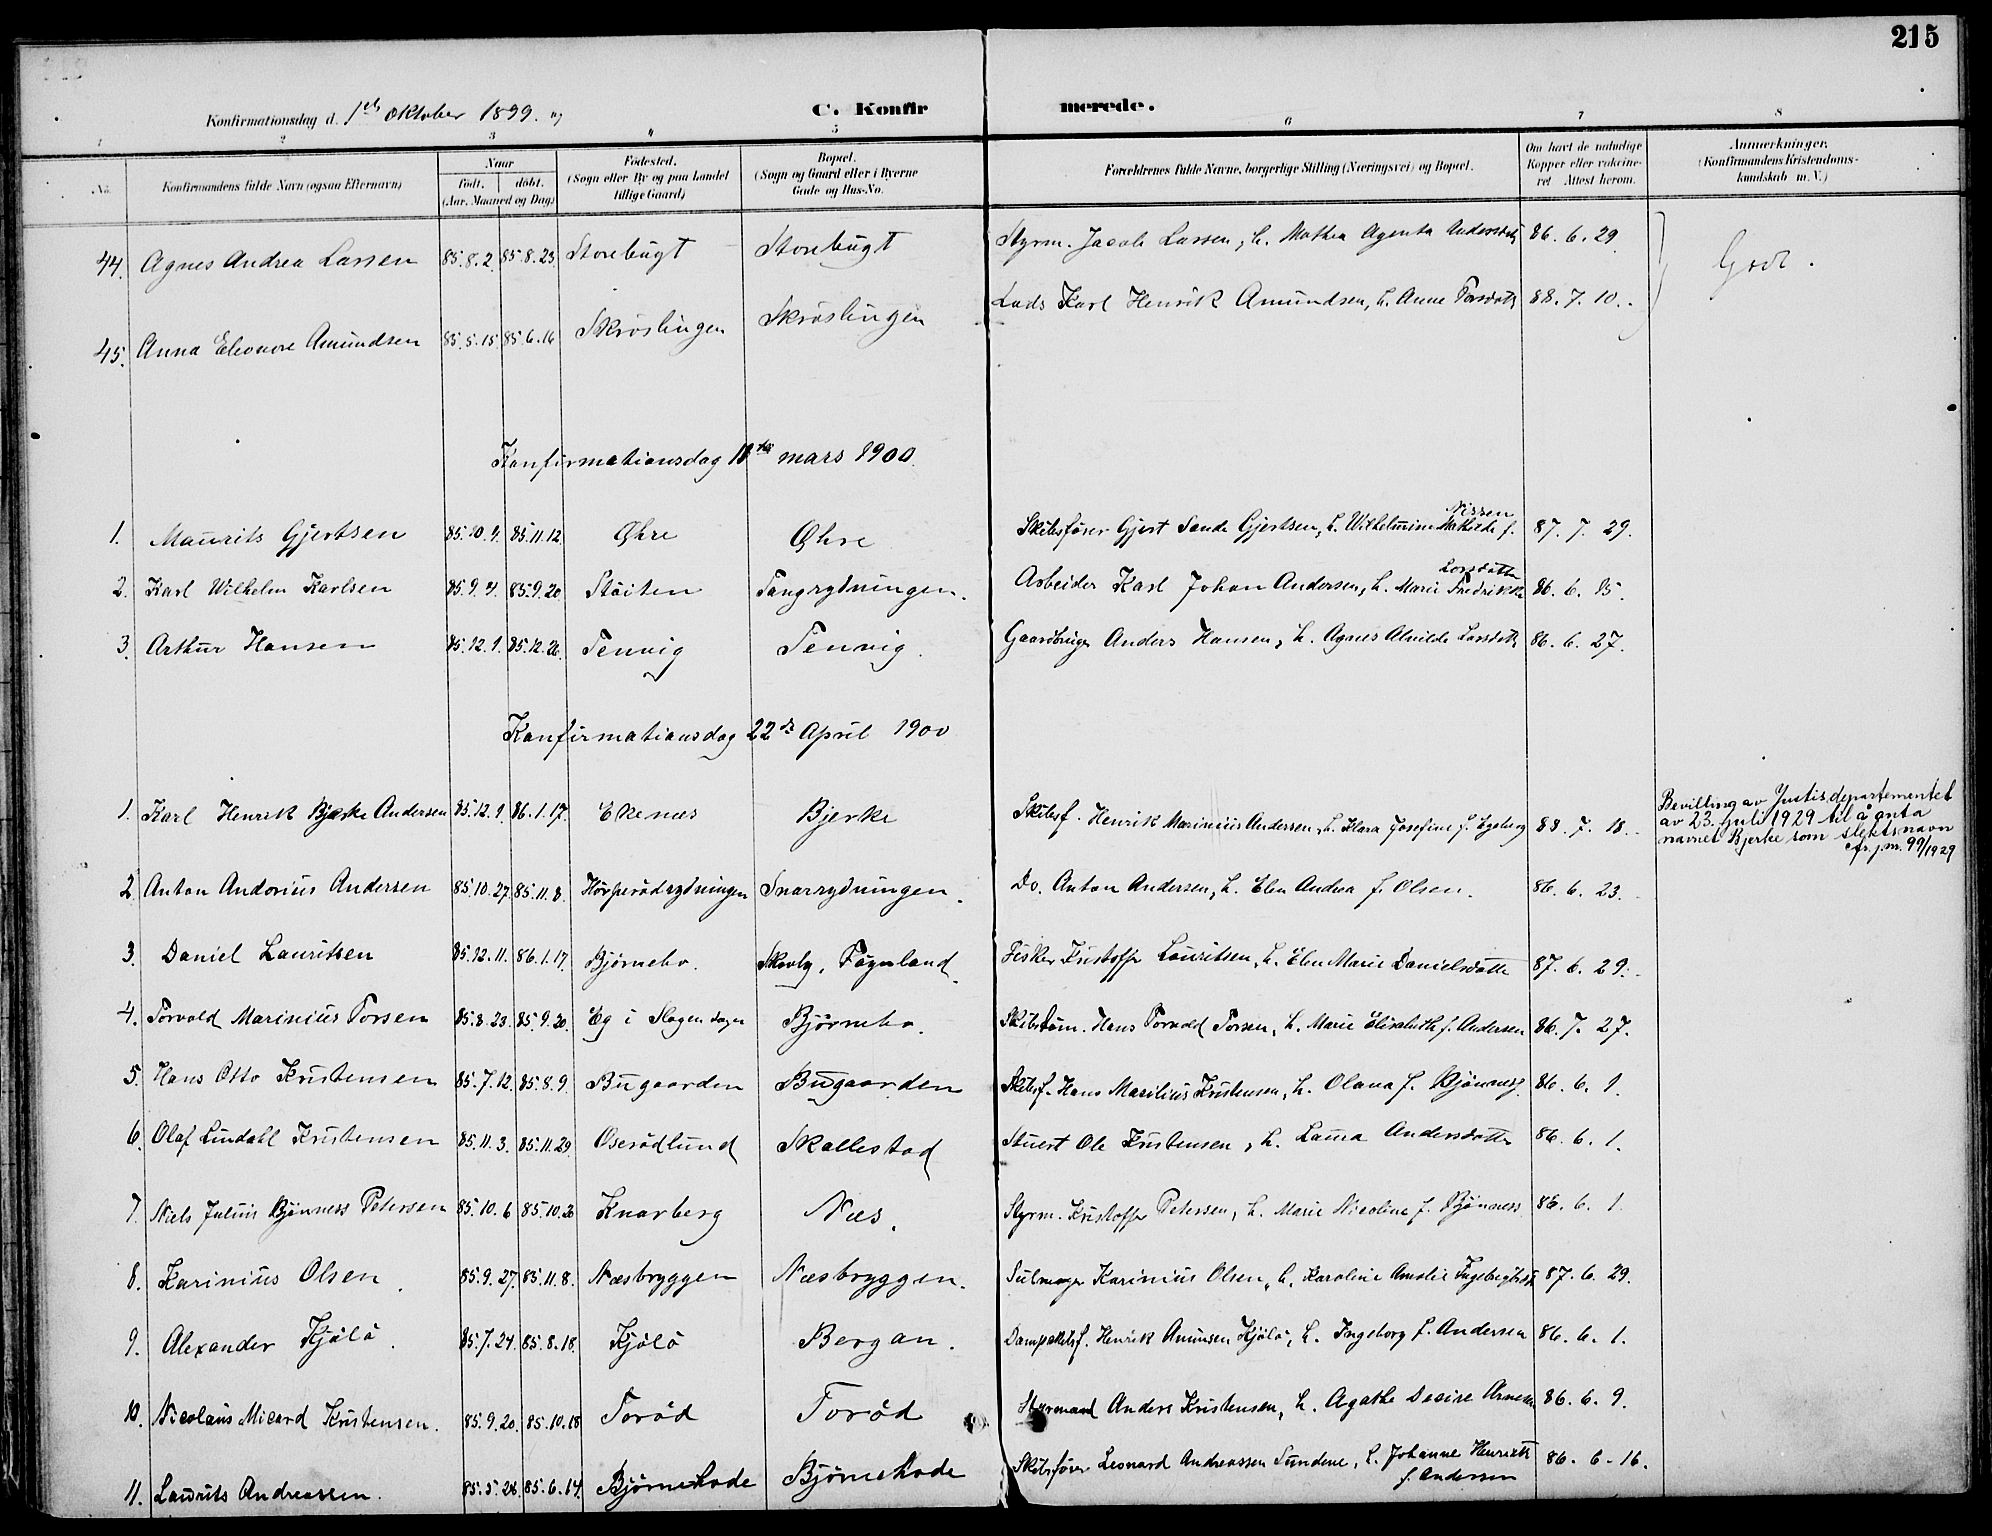 215
Konfirmationsdag d. 1ste Oktober 1899.
C. Konfirmerede.
1 2 3 4 5 6 7 8
No. Konfirmandens fulde Navn (ogsaa Efternavn) Naar født. døbt. (Aar, Maaned og Dag) Fødested. (Sogn eller By og paa Landet tillige Gaard) Bopæl. (Sogn og Gaard eller i Byerne Gade og Hus-No. Forældrenes fulde Navne, borgerlige Stilling (Næringsvei) og Bopæl. Om havt de naturlige Kopper eller vaccineret Attest herom. Anmerkninger. (Konfirmandens Kristendomskundskab m. V.)
44. Agnes Andrea Larsen 85.8.2. 85.8.23. Storebugt Storebugt Styrm. Jacob Larsen, h. Mathea Agenta Andersdtr 86. 6. 29. Godt.
45. Anna Eleonore Amundsen 85.5.15 85.6.14 Skrøslingen Skrøslingen Lods Karl Henrik Amundsen, h. Anne Torsdatt 88. 7. 10.
Konfirmationsdag 11te mars 1900.
1. Maurits Gjertsen 85.10.4. 85.11.12. Øhre Øhre Skibsfører Gjert Sande Gjertsen, h. Wilhelmine Mathilde f. Nissen 87. 7. 29.
2. Karl Wilhelm Karlsen 85.9.4. 85.9.20. Støiten Tangrydningen. Arbeider Karl Johan Andersen, h. Marie Fredrikke Larsdatter 86. 6. 15.
3. Arthur Hansen 85.12.1. 85.12.26. Tenvig Tenvig. Gaardbruger Anders Hansen, h. Agnes Alvilde Larsdatt 86. 6. 27.
Konfirmationsdag 22de April 1900
1. Karl Henrik Bjerke Andersen 85.12.1. 86.1.17. Ekenæs Bjerke Skibsf. Henrik Marinius Andersen, h. Klara Josefine f. Egeberg 88. 7. 18. Bevilling av Justisdepartementet
av 23. juli 1929 til å anta
navnet Bjerke som slektsnavn
cfr. j.nr. 99/1929
2 Anton Andorius Andersen 85.10.27. 85.11.8. Hørgerødrydningen Snarrydningen. Do. Anton Andersen, h. Elen Andrea f. Olsen. 86. 6. 23.
3. Daniel Lauritsen 85.12.11. 86.1.17. Bjørnebo. Skovly, Føynland. Fisker Kristoffer Lauritsen, h. Elen Marie Danielsdatter 87. 6. 29.
4. Torvald Marinius Torsen 85.8.23. 85.9.20. Eg i Slagen sogn Bjørnebo. Skibstøm. Hans Torvald Torsen, h. Marie Elisabeth f. Andersen 86. 7. 27.
5. Hans Otto Kristensen 85.7.12. 85.8.9. Bugaarden Bugaarden Skibsf. Hans Marilius Kristensen, h. Olava f. Bjønness 86. 6. 1
6. Olaf Lindahl Kristensen 85.11.3. 85.11.29. Oserødlund Skallestad Stuert Ole Kristensen, h. Laura Andersdatter 86. 6. 1.
7. Niels Julius Bjønness Petersen 85.10.6 85.10.20 Knarberg Næs. Styrm. Kristoffer Petersen, h. Marie Nicoline f. Bjønness 86. 6. 1.
8. Karinius Olsen. 85.9.27. 85.11.8. Næsbryggen Næsbryggen. Seilmager Karinius Olsen, h. Karoline Amalie Ingebrigtsdt 87. 6. 29.
9. Alexander Kjølø. 85.7.24. 85.8.18. Kjølø Bergan. Dampskibsf. Henrik Amunsen Kjølø, h. Ingeborg f. Andersen 86. 6. 1.
10. Nicolaus Micard Kristensen. 85.9.20. 85.10.18 Torød Torød Styrmand Anders Kristensen, h. Agathe Desire 86. 6. 9.
11. Laurits Andreassen. 85.5.26. 85.6.14. Bjørneskode Bjørneskode Skibsfører Leonard Andreassen Sundene, h. Johanne Henriette f. Andersen 86. 6. 16.